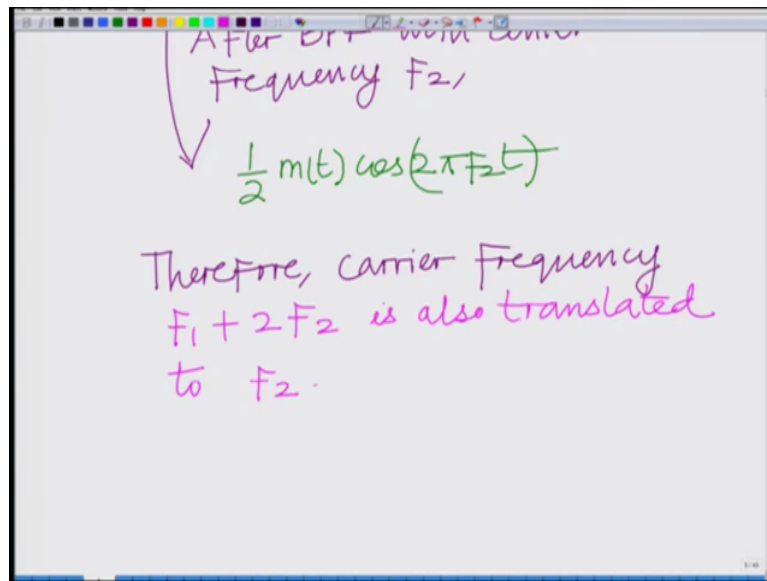 After BPF with center
Frequency F2,
1/2 m(t) cos(2πF2t)
Therefore, carrier frequency
F1 + 2F2 is also translated
to F2.